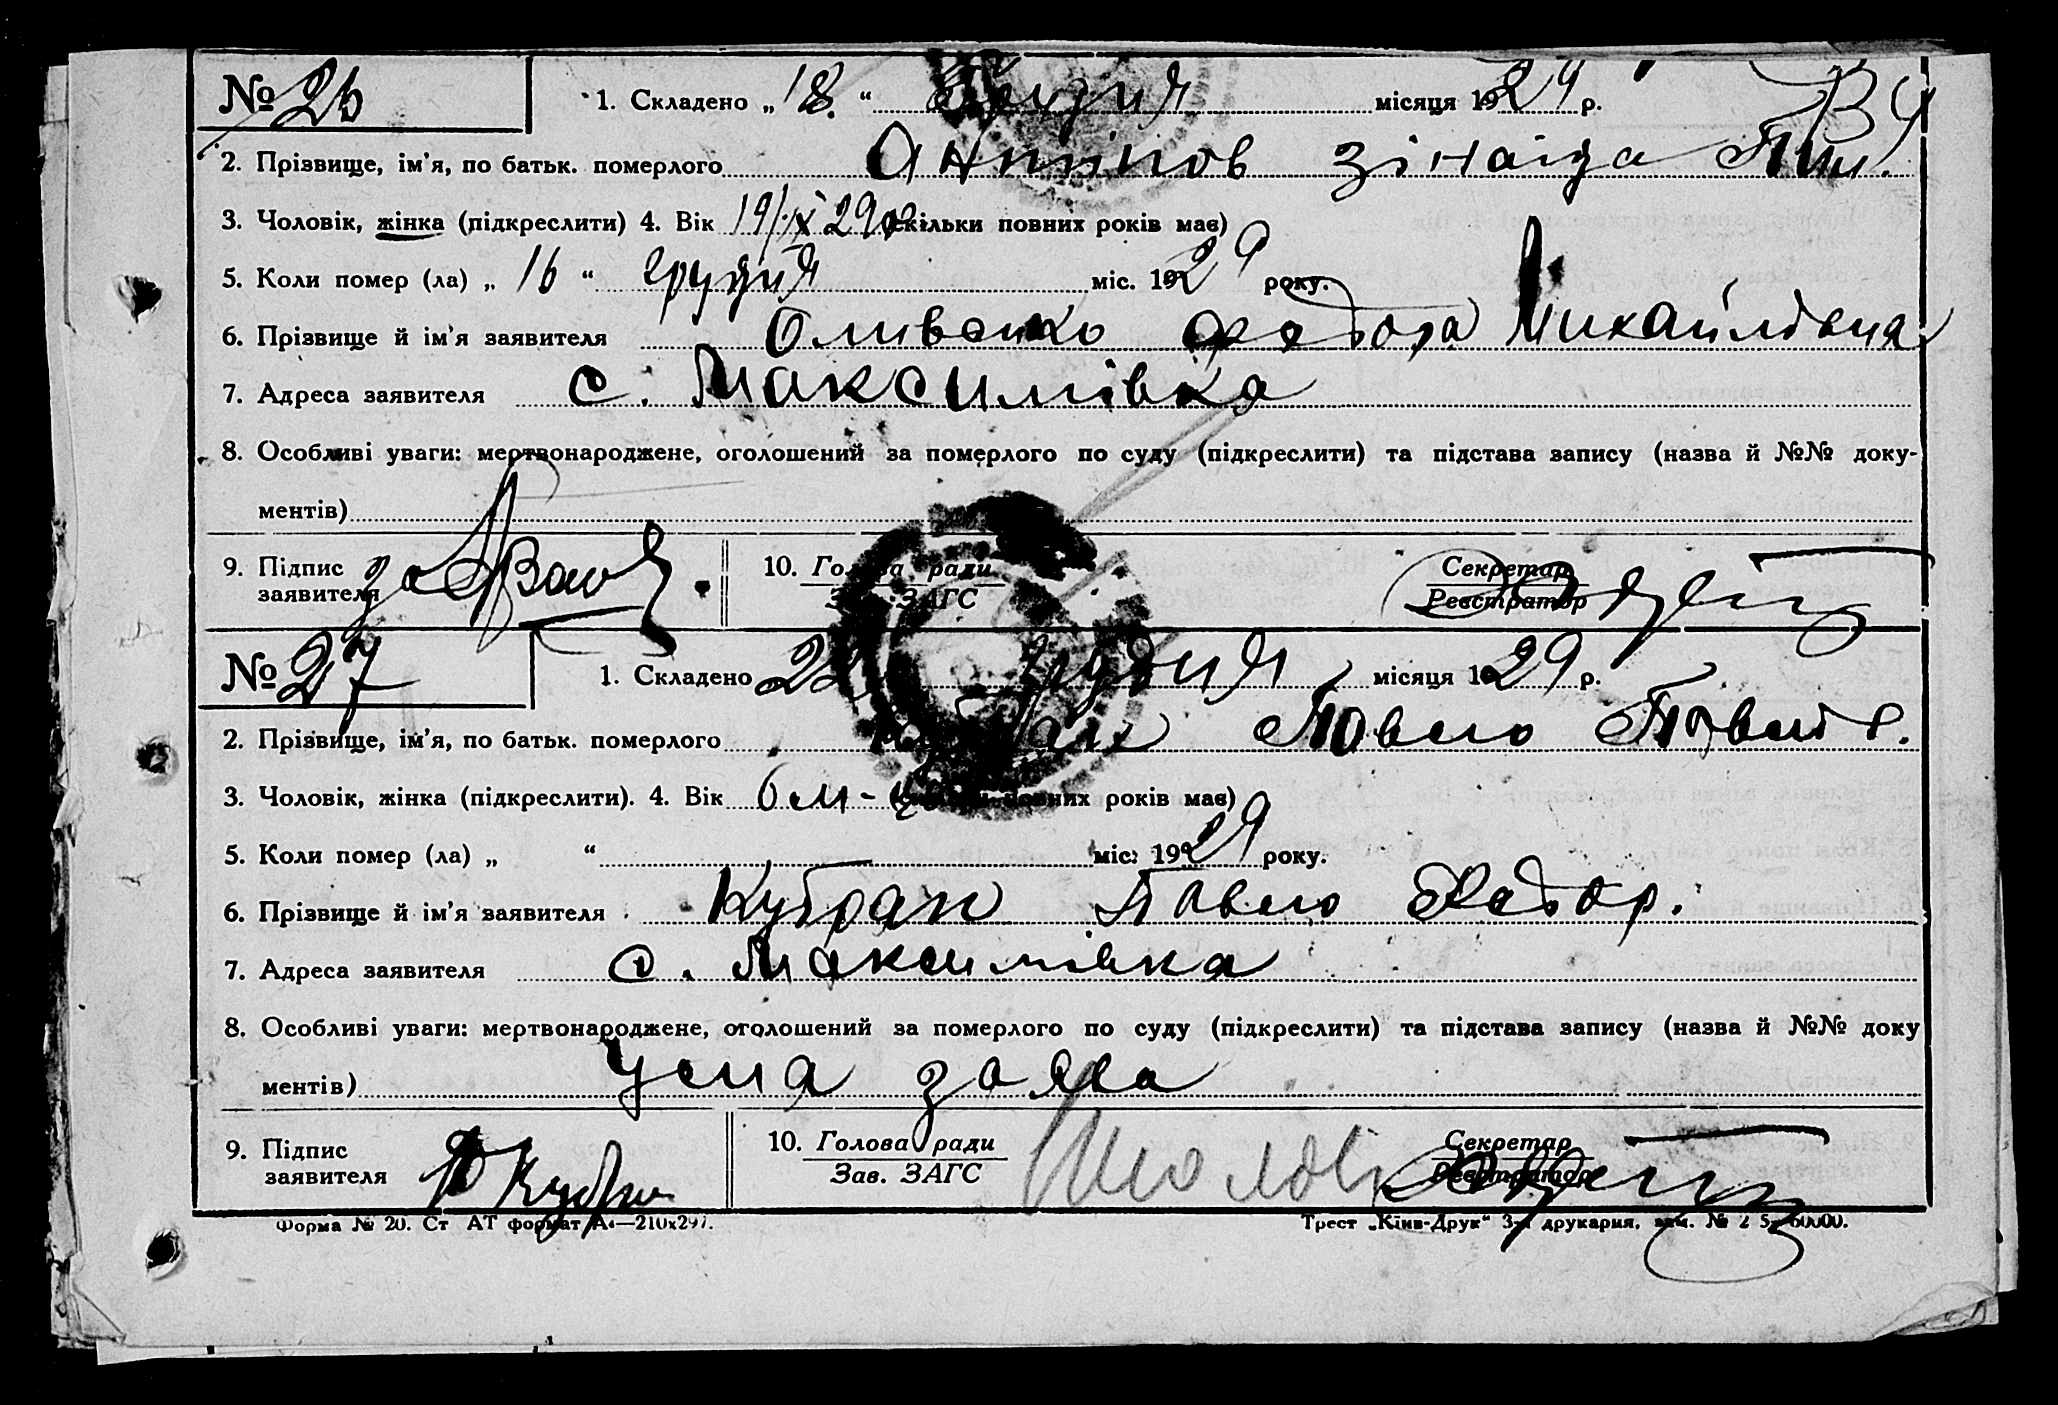 № 26 1. Складено „18“ грудня місяця 1929 р.
2. Прізвище, ім'я, по батьк. померлого Антіпов Зінаіда
3. Чоловік, жінка (підкреслити) 4. Вік 19/IX 29 р. (скільки повних років має)
5. Коли помер (ла) „16“ грудня міс. 1929 року.
6. Прізвище й ім'я заявителя Федора Михайловна
7. Адреса заявителя с. Максимівка
8. Особливі уваги: мертвонароджене, оголошений за померлого по суду (підкреслити) та підстава запису (назва й №№ доку-
ментів)
9. Підпис заявителя за 10. Голова ради Зав. ЗАГС Секретар Реєстратор
№ 27 1. Складено 22 грудня місяця 1929 р.
2. Прізвище, ім'я, по батьк. померлого Павло Павлов.
3. Чоловік, жінка (підкреслити). 4. Вік 6 м-ц повних років має)
5. Коли помер (ла) „ “ міс. 1929 року.
6. Прізвище й ім'я заявителя Кубрак Павло Федор.
7. Адреса заявителя с. Максимівка
8. Особливі уваги: мертвонароджене, оголошений за померлого по суду (підкреслити) та підстава запису (назва й №№ доку
ментів) Усна заява
9. Підпис заявителя 10. Голова ради Зав. ЗАГС Секретар Реєстратор
Форма № 20. Ст АТ формат А4—210x297. Трест „Київ-Друк“ 3-я друкарня, зам. №